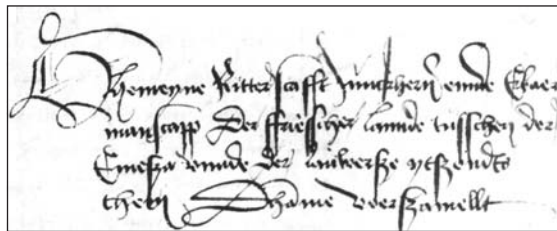 Ghemeyne Ritterscafft Junckhern ennde Erbaer
manscapp Der ffriesscher lannde tusschen der
Emesza vnnde der lauwersze ytszondts
tho Dhame vorszamellt